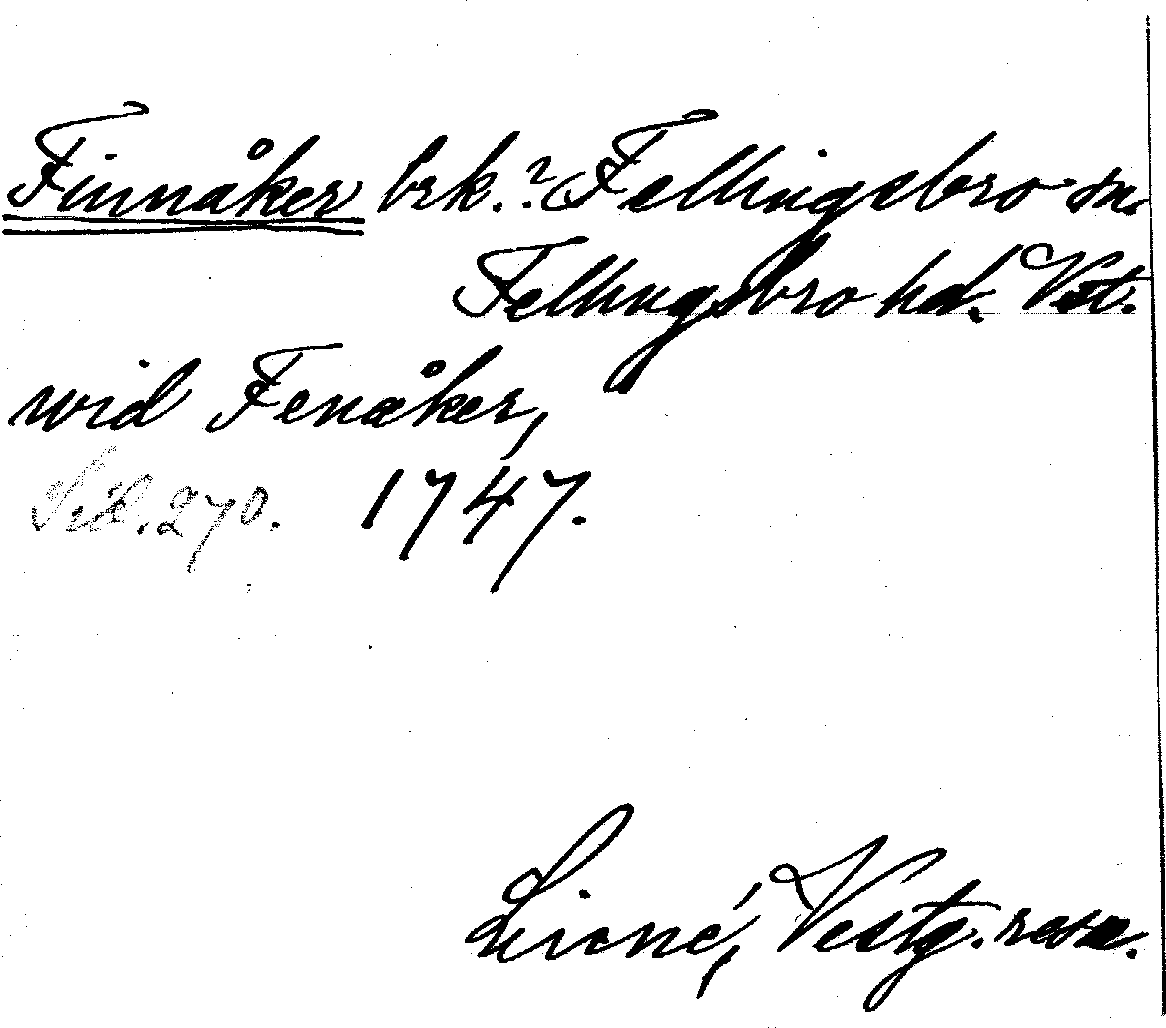 Finnåker brk.? Fellingsbro sn.
Fellingsbro hd. Vst.
wid Fenåker,
Sid. 270. 1747.
Linné, Vestg. resa.